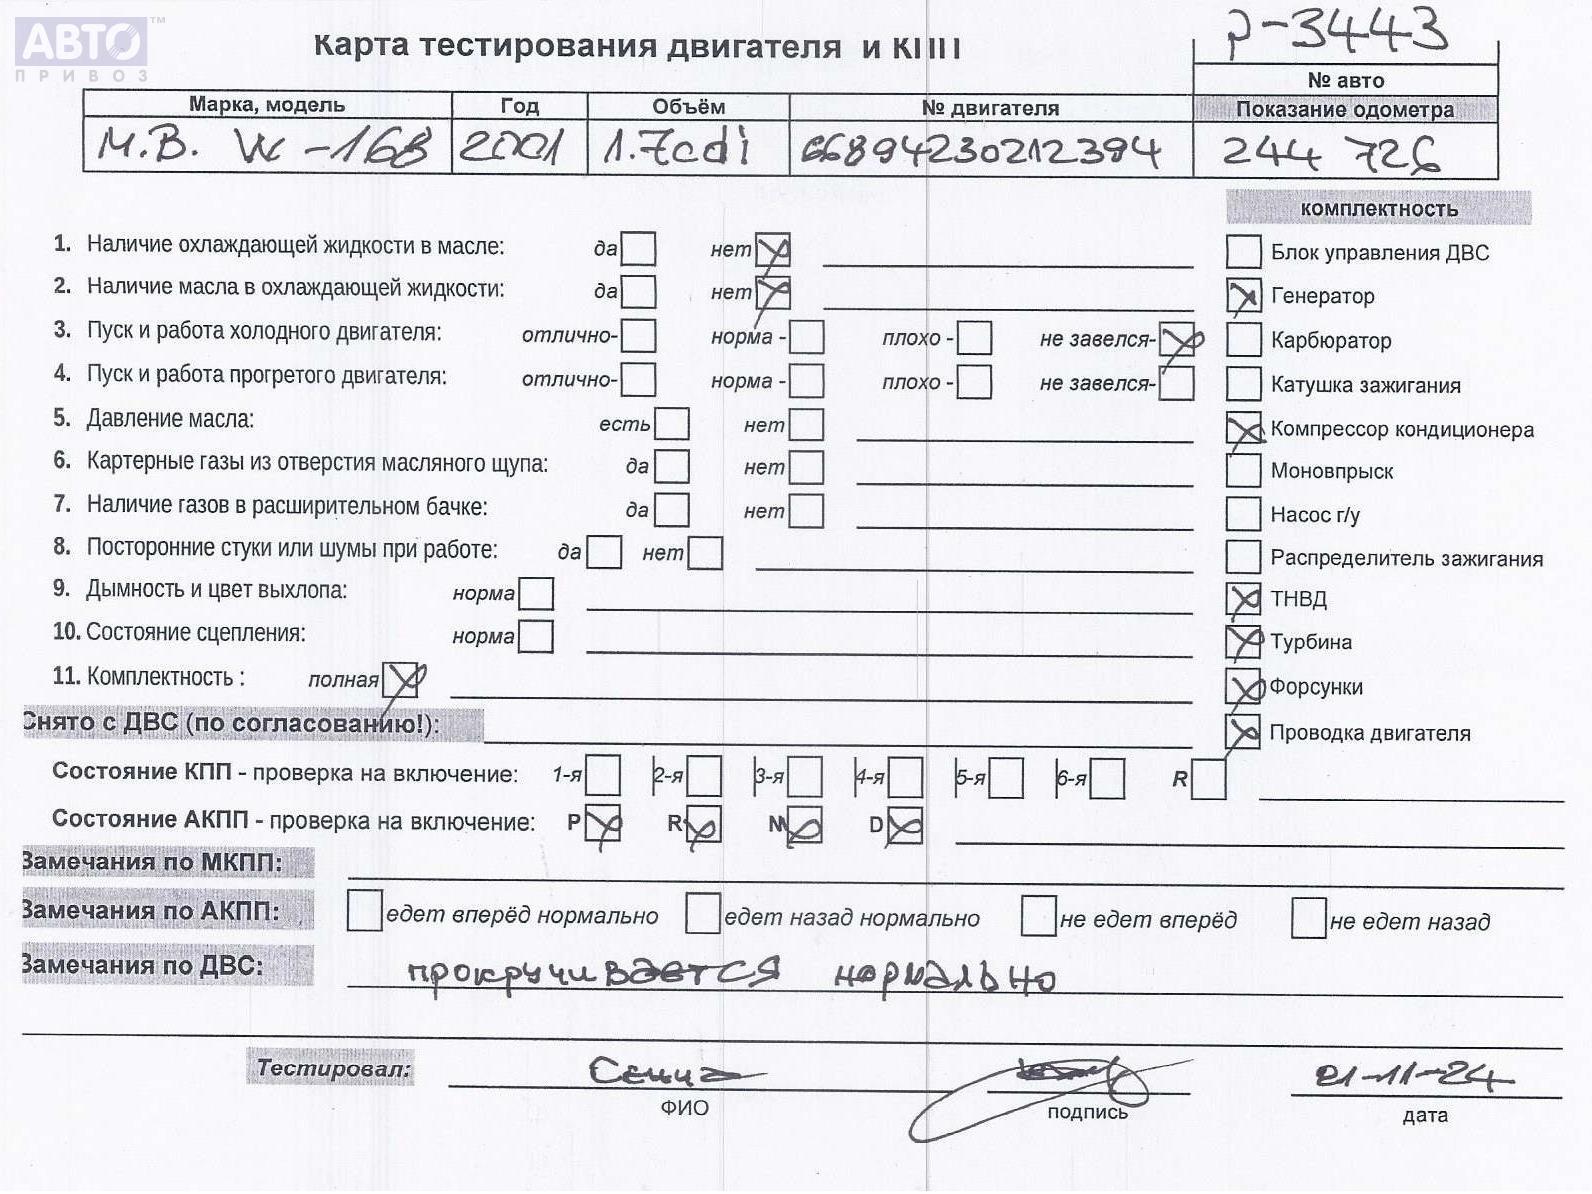 АВТО™
ПРИВОЗ
р-3443
Карта тестирования двигателя и КПП
№ авто
Марка, модель Год Объём № двигателя Показание одометра
М.В. W-168 2001 1.7cdi 66894230212394 244 726
комплектность
1. Наличие охлаждающей жидкости в масле: да нет
Блок управления ДВС
2. Наличие масла в охлаждающей жидкости: да нет
Генератор
3. Пуск и работа холодного двигателя: отлично- норма - плохо - не завелся-
Карбюратор
4. Пуск и работа прогретого двигателя: отлично- норма - плохо - не завелся-
Катушка зажигания
5. Давление масла: есть нет
Компрессор кондиционера
6. Картерные газы из отверстия масляного щупа: да нет
Моновпрыск
7. Наличие газов в расширительном бачке: да нет
Насос г/у
8. Посторонние стуки или шумы при работе: да нет
Распределитель зажигания
9. Дымность и цвет выхлопа: норма
ТНВД
10. Состояние сцепления: норма
Турбина
11. Комплектность : полная
Форсунки
Снято с ДВС (по согласованию!):
Проводка двигателя
Состояние КПП - проверка на включение: 1-я 2-я 3-я 4-я 5-я 6-я R
Состояние АКПП - проверка на включение: P R N D
Замечания по МКПП:
Замечания по АКПП: едет вперёд нормально едет назад нормально не едет вперёд не едет назад
Замечания по ДВС: прокручивается нормально
Тестировал: 21-11-24
ФИО подпись дата